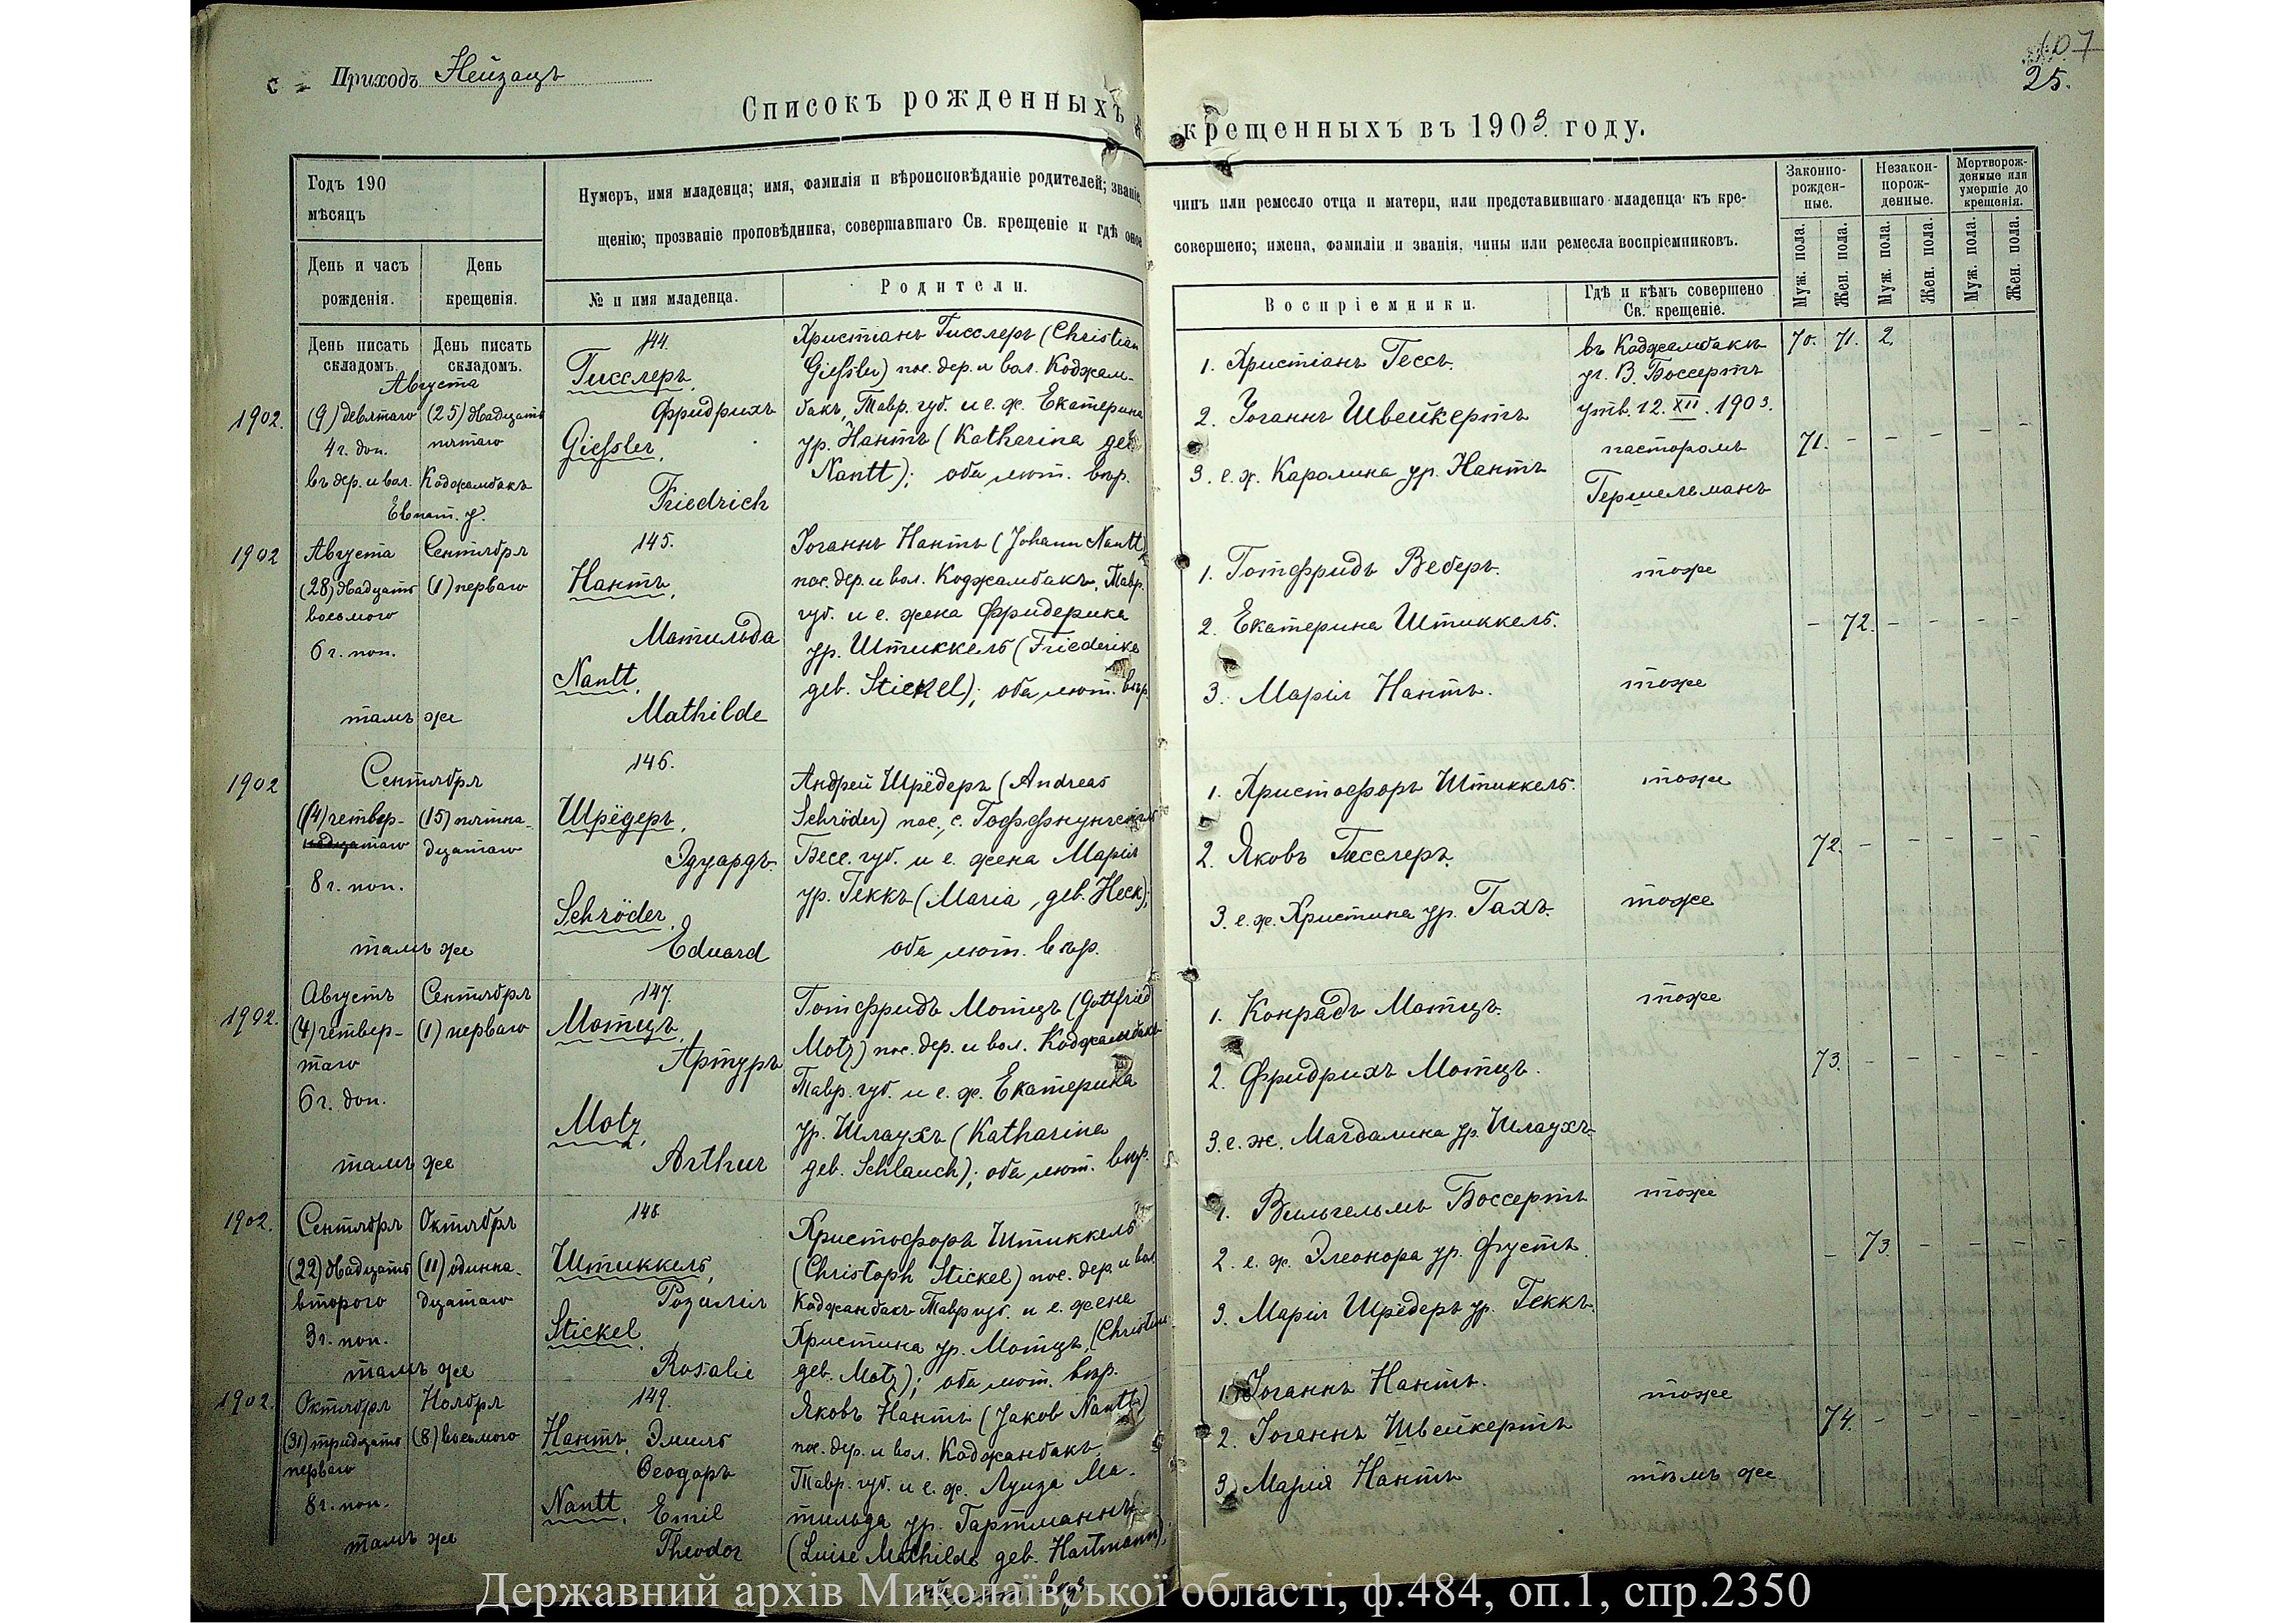 Приходъ Нейзацъ
107
25.
Списокъ рожденныхъ и крещенныхъ въ 1903 году.
Годъ 190
мѣсяцъ
День и часъ рожденія.
День крещенія.
Нумеръ, имя младенца; имя, фамилія и вѣроисповѣданіе родителей; званіе,
чинъ или ремесло отца и матери, или представившаго младенца къ кре-
щенію; прозваніе проповѣдника, совершавшаго Св. крещеніе и гдѣ оное
совершено; имена, фамиліи и званія, чины или ремесла воспріемниковъ.
№ и имя младенца.
Родители.
Воспріемники.
Гдѣ и кѣмъ совершено
Св. крещеніе.
Законно-
рожден-
ные.
Незакон-
норож-
денные.
Мертворож-
денные или
умершіе до
крещенія.
Муж. пола.
Жен. пола.
Муж. пола.
Жен. пола.
Муж. пола.
Жен. пола.
День писать
складомъ.
День писать
складомъ.
70. 71. 2.
1902.
Августа
(9) девятаго
4 г. доп.
(25) двадцать
пятаго
въ дер. и вол. Коджамбакъ
Евпат. у.
144.
Гисслеръ,
Фридрихъ
Giessler,
Friedrich
Христіанъ Гисслеръ (Christian
Giessler) пос. дер. и вол. Коджам-
бакъ, Тавр. губ. и е. ж. Екатерина
ур. Нантъ (Katharina geb.
Nantt); оба лют. вѣр.
1. Христіанъ Гессъ.
2. Іоганнъ Швейкертъ
3. е. ж. Каролина ур. Нантъ
въ Коджамбакъ
уч. В. Боссертъ
утв. 12. XII. 1903.
пасторомъ
Гершельманъ
71. - - - - -
1902
Августа
(28) двадцать
восьмого
6 г. поп.
Сентября
(1) перваго
тамъ же
145.
Нантъ,
Матильда
Nantt,
Mathilde
Іоганнъ Нантъ (Johann Nantt)
пос. дер. и вол. Коджамбакъ, Тавр.
губ. и е. жена Фридерика
ур. Штиккель (Friederike
geb. Stickel); оба лют. вѣр.
1. Готфридъ Веберъ.
2. Екатерина Штиккель.
3. Марія Нантъ.
тоже
тоже
- 72. - - - -
1902
Сентября
(14) четвер-
надцатаго
8 г. поп.
(15) пятна-
дцатаго
тамъ же
146.
Шрёдеръ,
Эдуардъ.
Schröder,
Eduard
Андрей Шрёдеръ (Andreas
Schröder) пос. с. Гоффнунгсталь
Бесс. губ. и е. жена Марія
ур. Геккъ (Maria, geb. Heck);
оба лют. вѣр.
1. Христофоръ Штиккель.
2. Яковъ Гисслеръ.
3. е. ж. Христина ур. Гахъ.
тоже
тоже
72. - - - - -
1902.
Августъ
(4) четвер-
таго
6 г. доп.
Сентября
(1) перваго
тамъ же
147.
Мотцъ,
Артуръ
Motz,
Arthur
Готфридъ Мотцъ (Gottfried
Motz) пос. дер. и вол. Коджамбакъ
Тавр. губ. и е. ж. Екатерина
ур. Шлаухъ (Katharina
geb. Schlauch); оба лют. вѣр.
1. Конрадъ Мотцъ.
2. Фридрихъ Мотцъ.
3. е. ж. Магдалина ур. Шлаухъ
тоже
73. - - - - -
1902.
Сентября
(22) двадцать
второго
3 г. поп.
Октября
(11) одинна-
дцатаго
тамъ же
148
Штиккель,
Розалія
Stickel,
Rosalie
Христофоръ Штиккель
(Christoph Stickel) пос. дер. и вол.
Коджанбакъ Тавр губ. и е. жена
Христина ур. Мотцъ, (Christine
geb. Motz); оба лют. вѣр.
1. Вильгельмъ Боссертъ
2. е. ж. Элеонора ур. Фустъ.
3. Марія Шрёдеръ ур. Геккъ.
тоже
- 73. - - - -
1902.
Октября
(31) тридцать
перваго
8 г. поп.
Ноября
(8) восьмого
тамъ же
149.
Нантъ, Эмиль
Ѳеодоръ
Nantt, Emil
Theodor
Яковъ Нантъ (Jakob Nantt)
пос. дер. и вол. Коджанбакъ
Тавр. губ. и е. ж. Луиза Ма-
тильда ур. Гартманнъ
(Luise Mathilde geb. Hartmann);
оба лют. вѣр.
1. Іоганнъ Нантъ.
2. Іоганнъ Швейкертъ
3. Марія Нантъ
тоже
тамъ же
74. - - - - -
Державний архів Миколаївської області, ф.484, оп.1, спр.2350